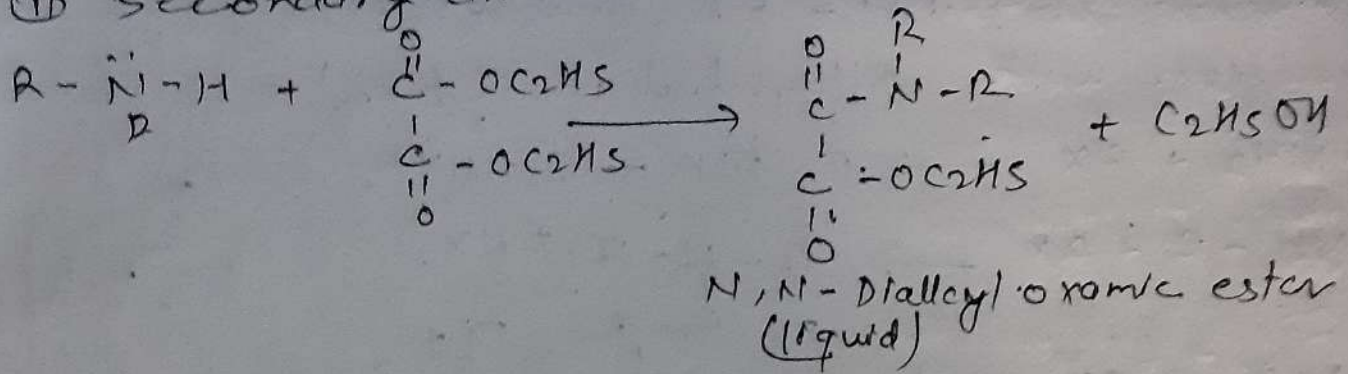 (ii) Secondary
R - N̈ - H + C - OC2H5 → C - N - R + C2H5OH
R
O
||
C - OC2H5
||
O
O
||
R
C - OC2H5
||
O
N, N - Dialkyl oxamic ester
(liquid)